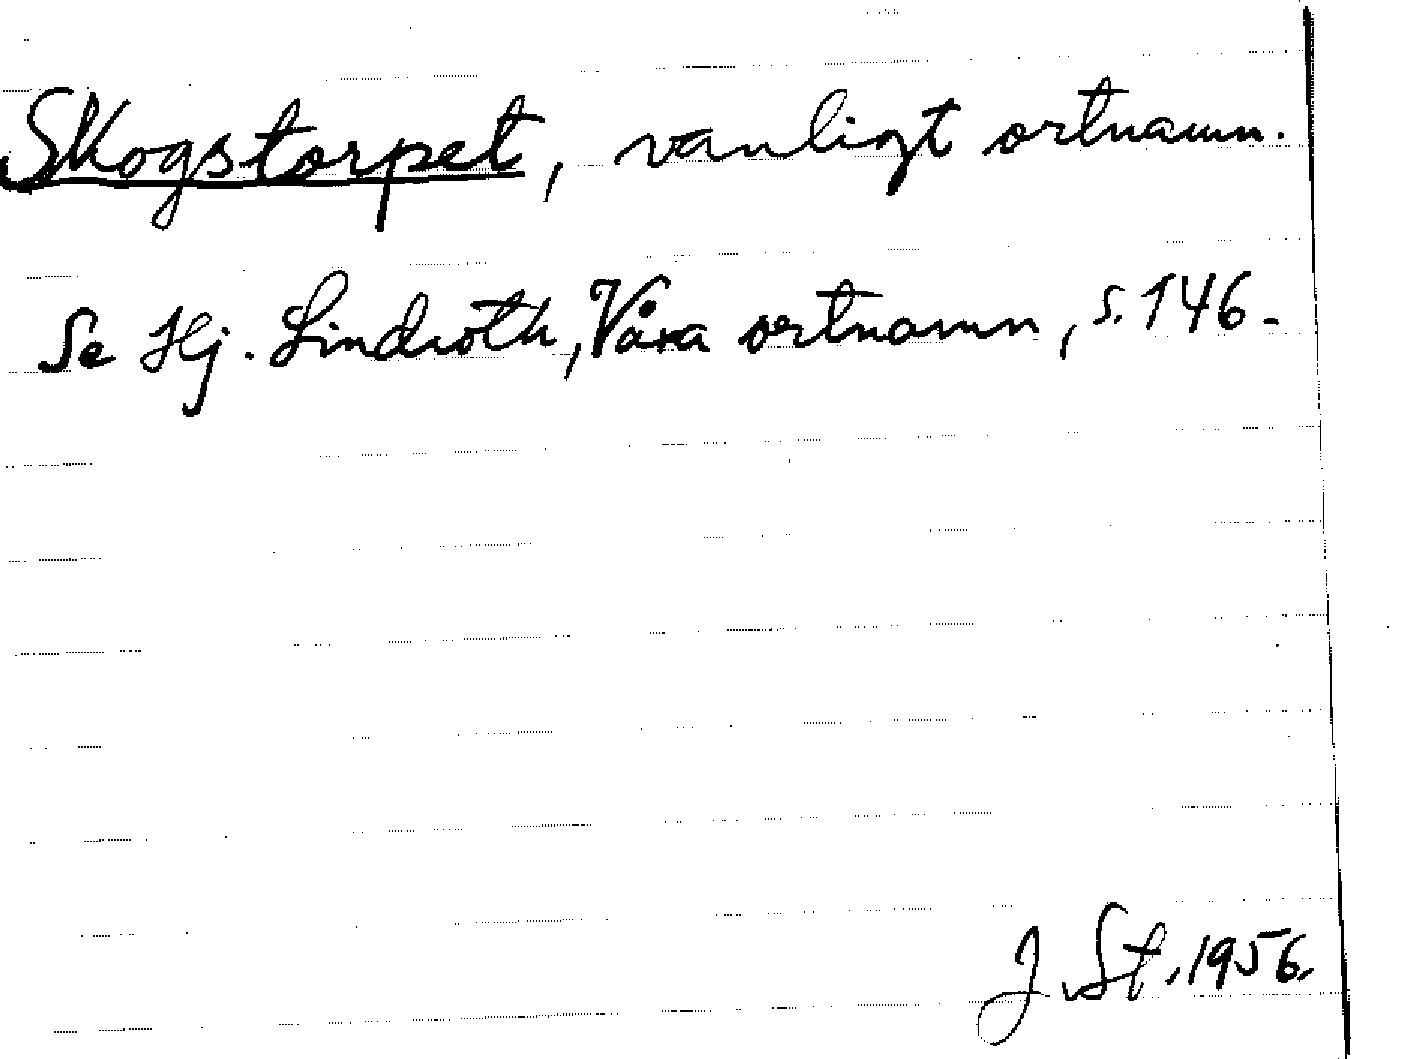 Skogstorpet, vanligt ortnamn.
Se Hj. Lindroth, Våra ortnamn, s. 146.
J. St. 1956.